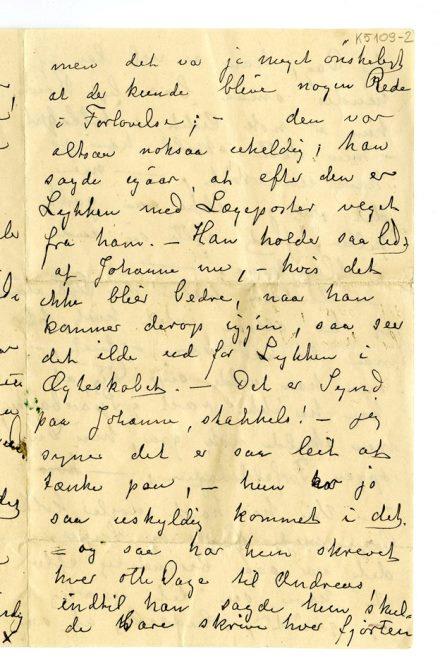 K5109-2
men det va jo meget ønskeligt
at de kunde blive nogen Rede
i Forlovelse; - den var
altsaa noksaa uheldig; han
sagde igaar, at efter den er
Lykken med Lægeposter veget
fra ham. - Han holde saa
af Johanne nu, - hvis det
ikke blier bedre, naar han
kommer derop igjen, saa seer
det ilde ud for Lykken i
Ægteskabet. - Det er Synd
paa Johanne, stakkels! - jeg
synes det er saa leit at
tænke paa, - hun har jo
saa uskyldig kommet i det.
= og saa har hun skrevet
hver otte Dage til Andreas,
indtil han sagde, hun skul-
de bare skrive hver fjorten